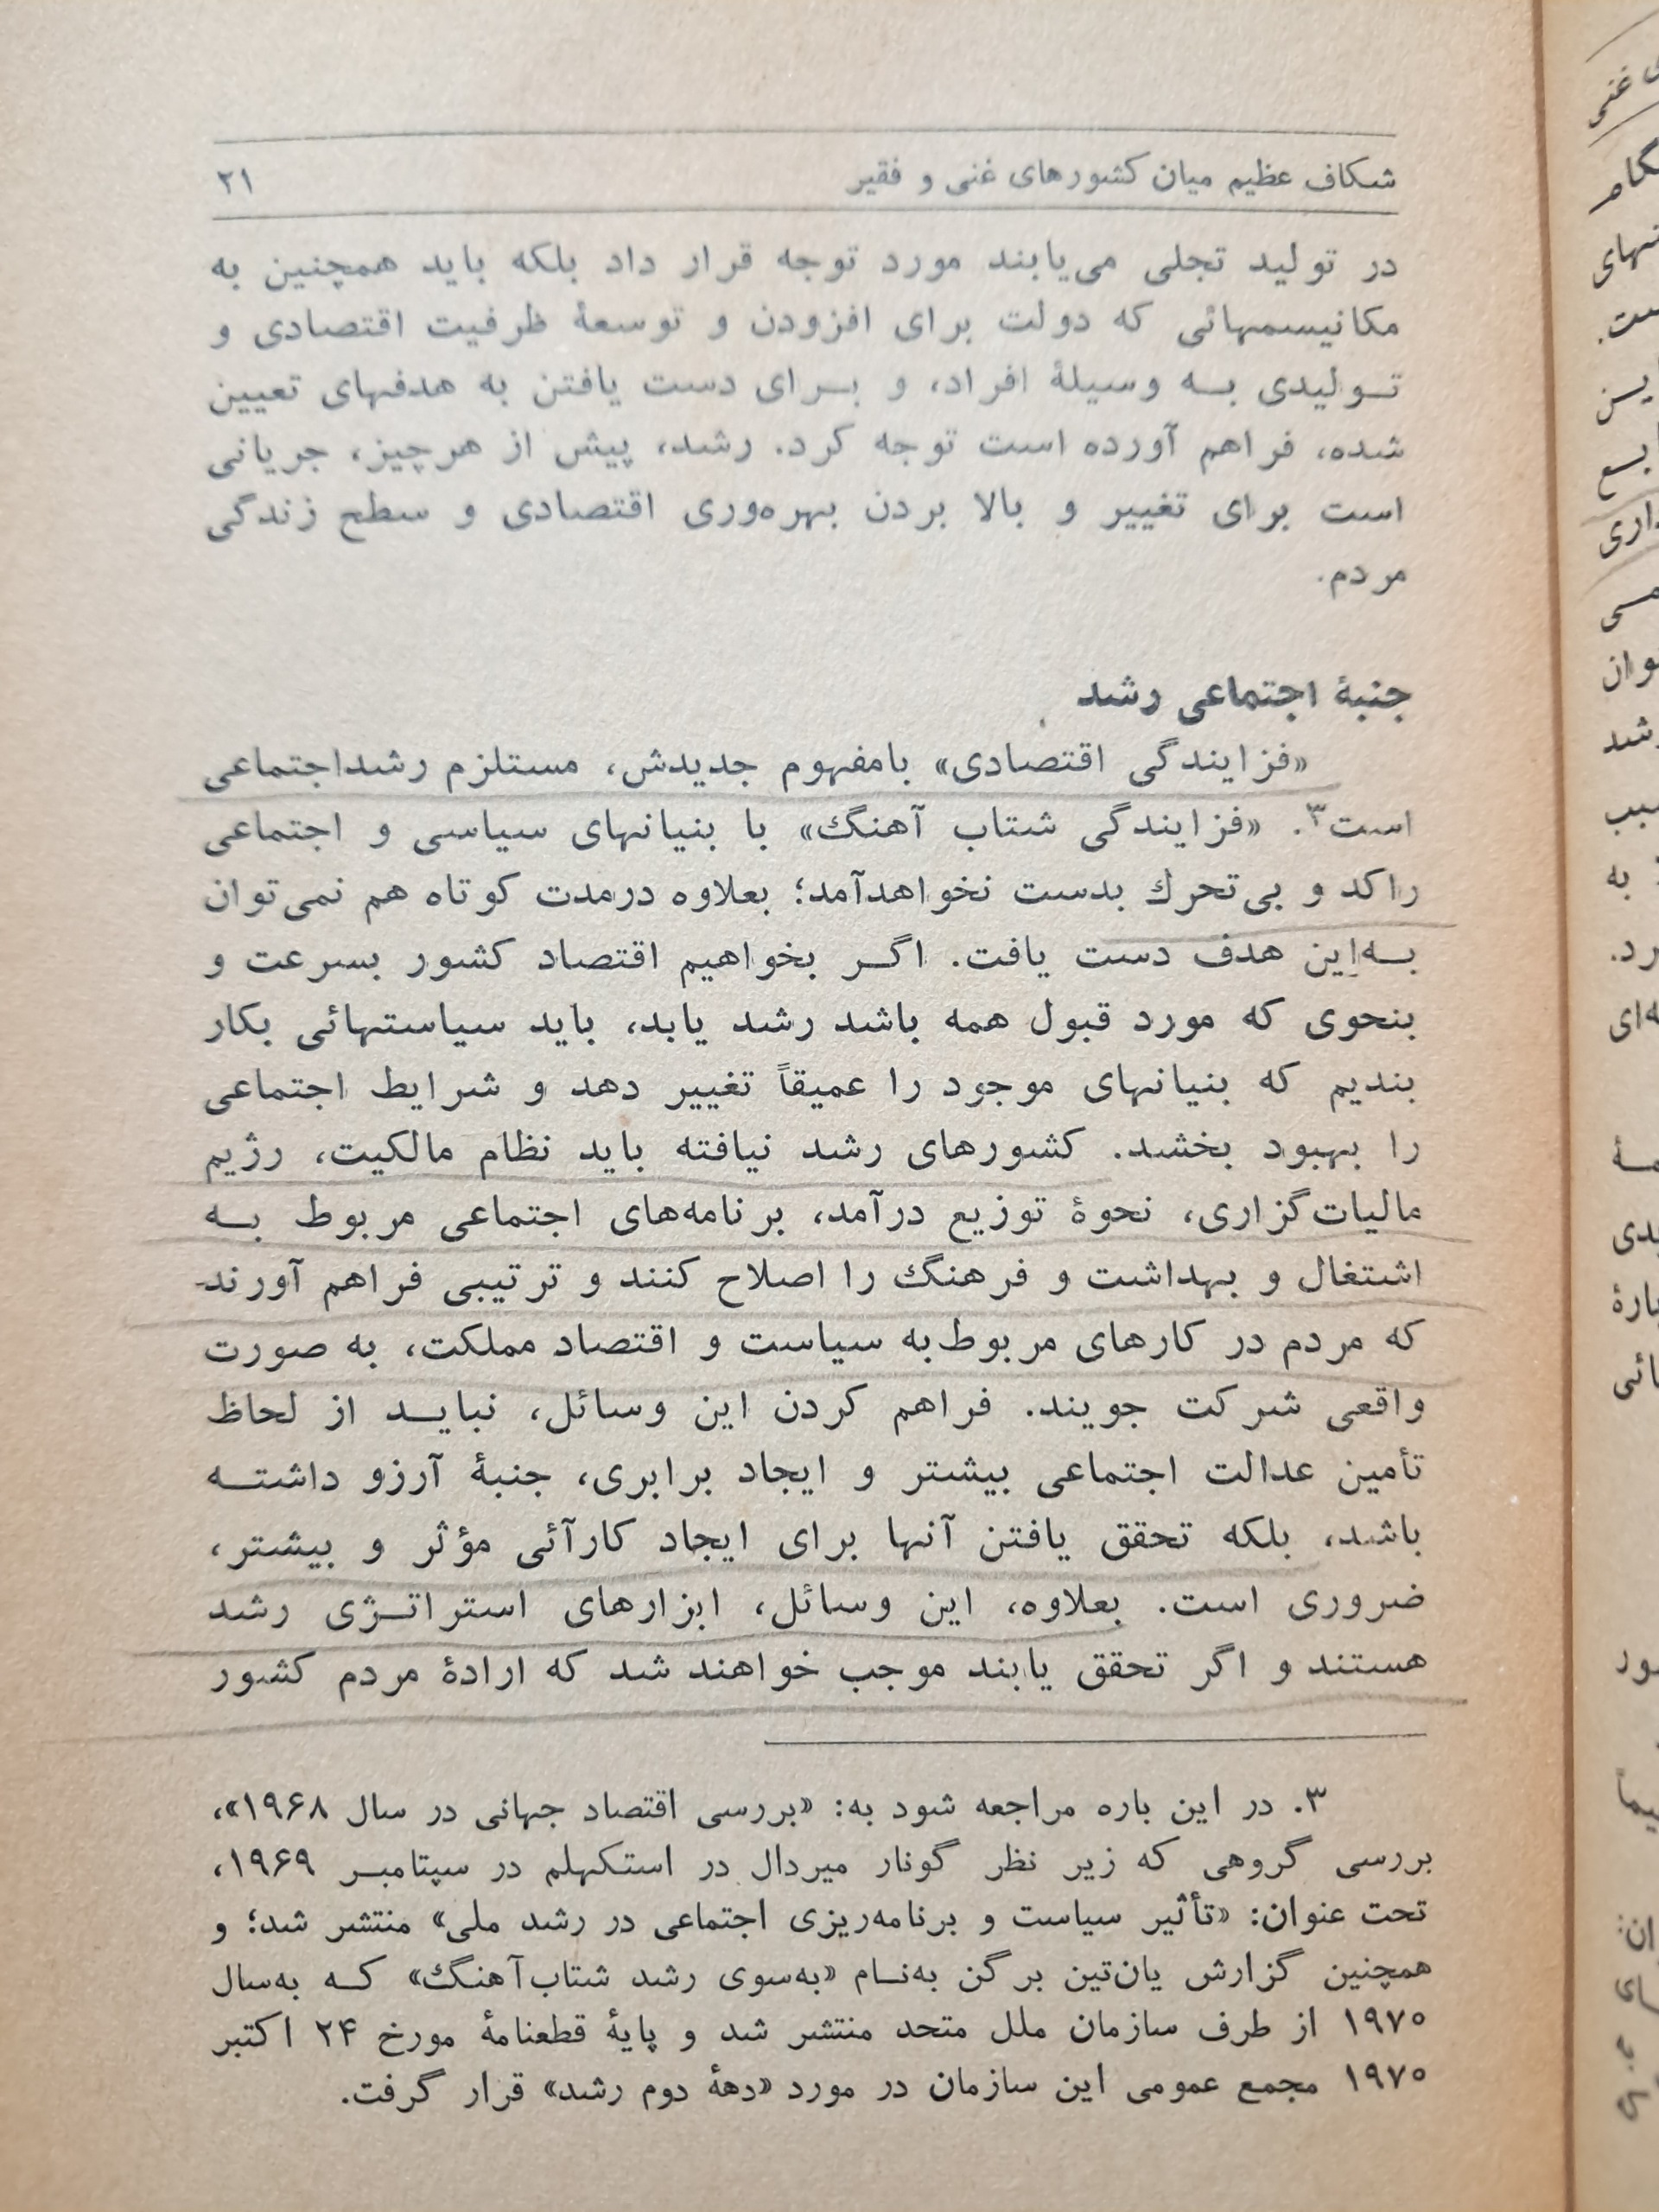 شکاف عظیم میان کشورهای غنی و فقیر ۲۱
در تولید تجلی می‌یابند مورد توجه قرار داد بلکه باید همچنین به
مکانیسمهائی که دولت برای افزودن و توسعهٔ ظرفیت اقتصادی و
تولیدی به وسیلهٔ افراد، و برای دست یافتن به هدفهای تعیین
شده، فراهم آورده است توجه کرد. رشد، پیش از هرچیز، جریانی
است برای تغییر و بالا بردن بهره‌وری اقتصادی و سطح زندگی
مردم.
جنبهٔ اجتماعی رشد
«فزایندگی اقتصادی» بامفهوم جدیدش، مستلزم رشداجتماعی
است۳. «فزایندگی شتاب آهنگ» با بنیانهای سیاسی و اجتماعی
راکد و بی‌تحرك بدست نخواهدآمد؛ بعلاوه درمدت کوتاه هم نمی‌توان
به‌این هدف دست یافت. اگر بخواهیم اقتصاد کشور بسرعت و
بنحوی که مورد قبول همه باشد رشد یابد، باید سیاستهائی بکار
بندیم که بنیانهای موجود را عمیقاً تغییر دهد و شرایط اجتماعی
را بهبود بخشد. کشورهای رشد نیافته باید نظام مالکیت، رژیم
مالیات‌گزاری، نحوهٔ توزیع درآمد، برنامه‌های اجتماعی مربوط به
اشتغال و بهداشت و فرهنگ را اصلاح کنند و ترتیبی فراهم آورند
که مردم در کارهای مربوط‌به سیاست و اقتصاد مملکت، به صورت
واقعی شرکت جویند. فراهم کردن این وسائل، نباید از لحاظ
تأمین عدالت اجتماعی بیشتر و ایجاد برابری، جنبهٔ آرزو داشته
باشد، بلکه تحقق یافتن آنها برای ایجاد کارآئی مؤثر و بیشتر،
ضروری است. بعلاوه، این وسائل، ابزارهای استراتژی رشد
هستند و اگر تحقق یابند موجب خواهند شد که ارادهٔ مردم کشور
۳. در این باره مراجعه شود به: «بررسی اقتصاد جهانی در سال ۱۹۶۸»،
بررسی گروهی که زیر نظر گونار میردال در استکهلم در سپتامبر ۱۹۶۹،
تحت عنوان: «تأثیر سیاست و برنامه‌ریزی اجتماعی در رشد ملی» منتشر شد؛ و
همچنین گزارش یان‌تین برگن به‌نام «به‌سوی رشد شتاب‌آهنگ» که به‌سال
۱۹۷۰ از طرف سازمان ملل متحد منتشر شد و پایهٔ قطعنامهٔ مورخ ۲۴ اکتبر
۱۹۷۰ مجمع عمومی این سازمان در مورد «دههٔ دوم رشد» قرار گرفت.